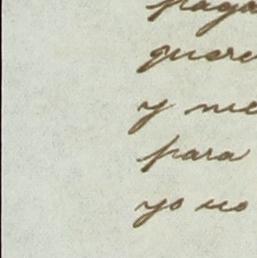 paga
quere
y me
para
yo no